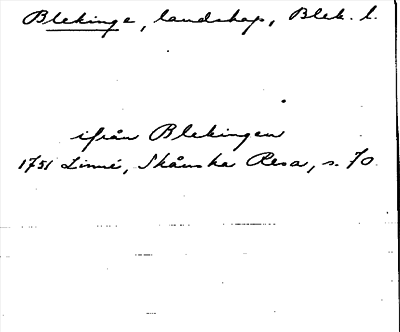 Blekinge, landskap, Blek. l.
ifrån Blekingen
1751 Linné, Skånska Resa, s. 70.